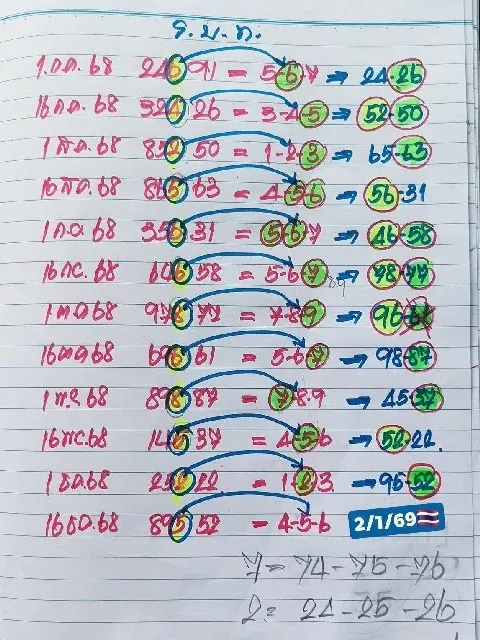 ร.บ.ก.
1.กค. 68 246 91 = 5-6-7 ⇒ 24-26
16 กค. 68 324 26 = 3-4-5 ⇒ 52-50
1 สค. 68 852 50 = 1-2-3 ⇒ 65-63
16 สค. 68 865 63 = 4-5-6 ⇒ 56-31
1 กย 68 356 31 = 5-6-7 ⇒ 46-58
16 กย. 68 646 58 = 5-6-7 ⇒ 78-77
1 ตค 68 978 77 = 7-8-9 → 96-61
16 ตค 68 696 61 = 5-6-7 → 98-87
1 พย 68 898 87 = 7-8-9 → 45-37
16 พย. 68 145 37 = 4-5-6 → 52-22.
1 ธค 68 252 22 = 1-2-3. → 95-52
16 ธค. 68 895 52 = 4-5-6 2/1/69
7 = 74-75-76
2 = 24-25-26